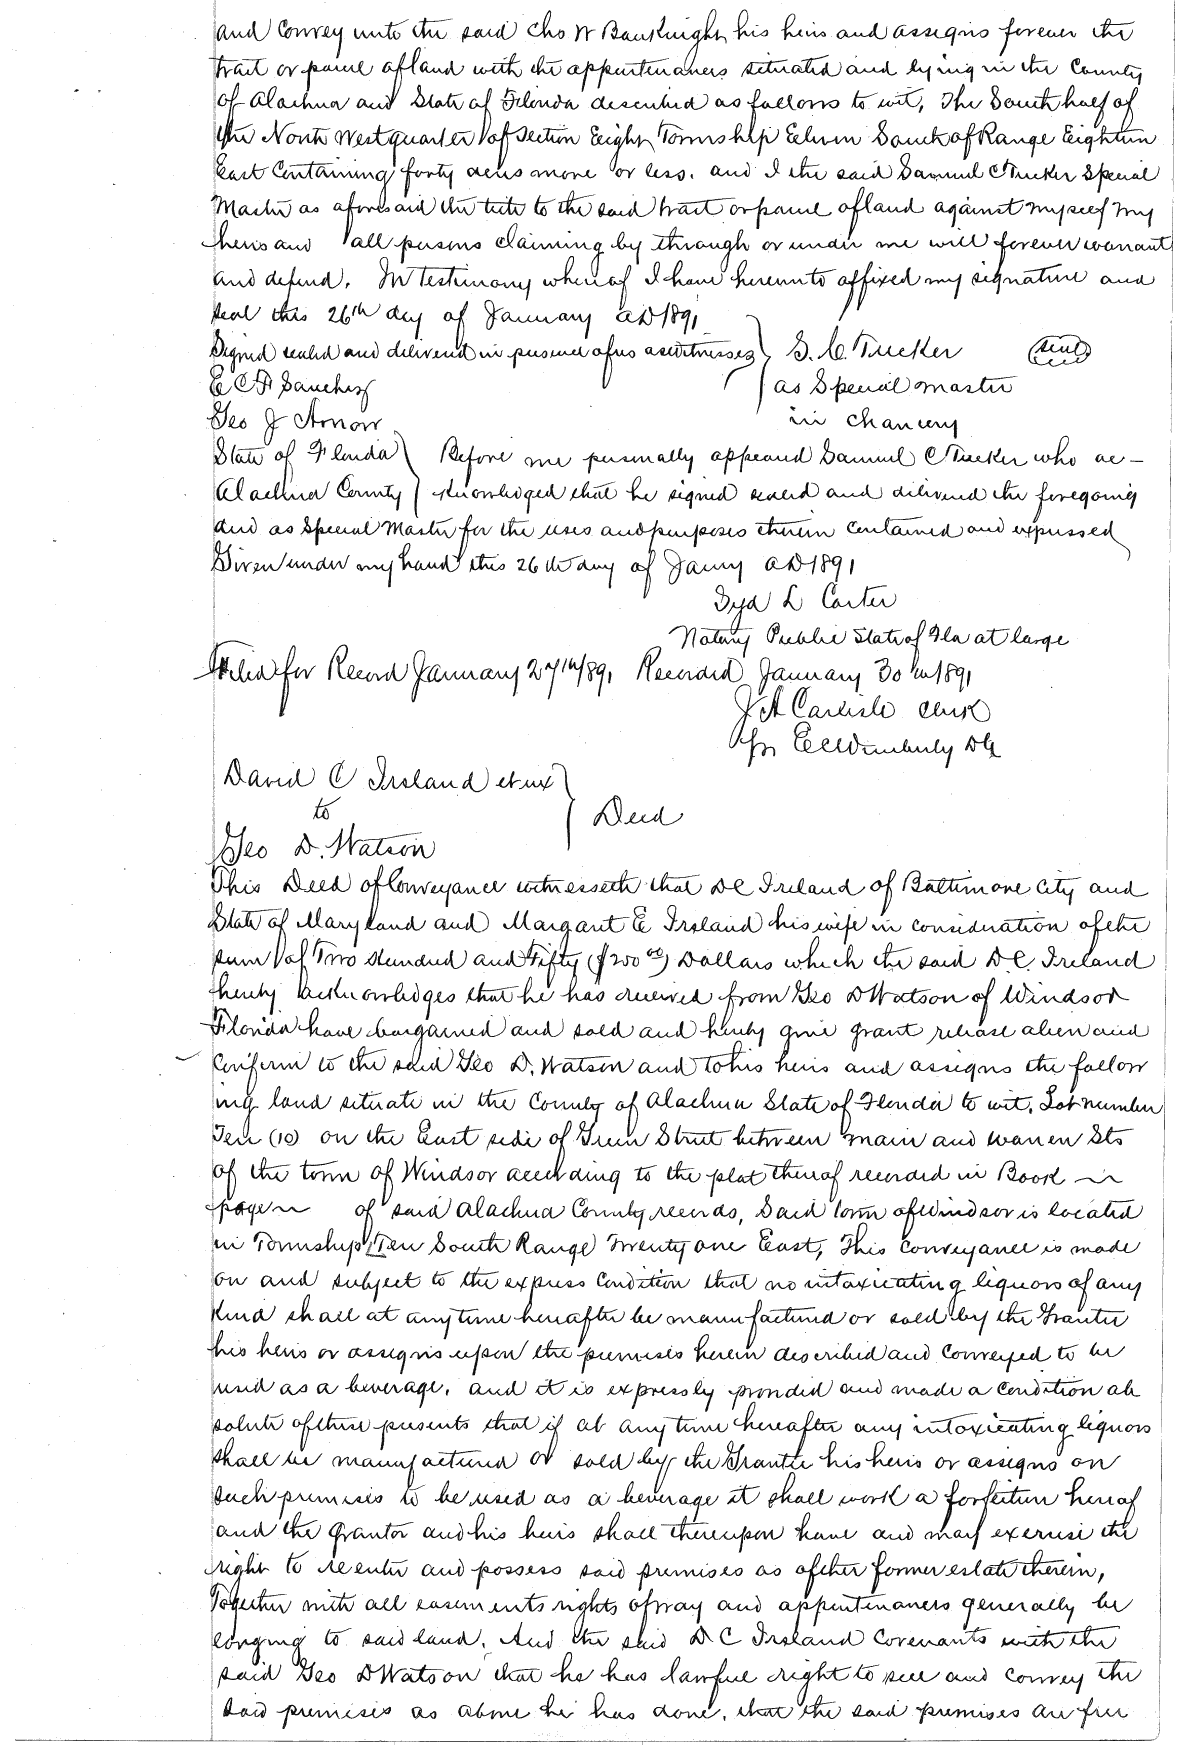 and Convey unto the said Chs W Bauknight his heirs and assigns forever the
tract or parcel of land with the appurtenances situated and lying in the County
of Alachua and State of Florida described as follows to wit, The South half of
the North West quarter of Section Eight Township Eleven South of Range Eighteen
East Containing forty acres more or less. and I the said Samuel C Tucker Special
Master as aforesaid the title to the said tract or parcel of land against myself my
heirs and all persons claiming by through or under me will forever warrant
and defend. In Testimony whereof I have hereunto affixed my signature and
seal this 26th day of January AD 1891
Signed sealed and delivered in presence of us as witnesses } S. C. Tucker (seal)
E C F Sanchez as Special master
Geo J Arnow in chancery
State of Florida } Before me personally appeared Samuel C Tucker who ac-
Alachua County } knowledged that he signed sealed and delivered the foregoing
and as Special Master for the uses and purposes therein contained and expressed
Given under my hand this 26th day of Janny AD 1891
Syd L Carter
Notary Public State of Fla at large
Filed for Record January 27th/891 Recorded January 30th/891
J A Carlisle Clerk
pr E C Wimberly DC
David C Ireland et ux
to } Deed
Geo D. Watson
This Deed of Conveyance witnesseth that D C Ireland of Baltimore City and
State of Maryland and Margaret E Ireland his wife in consideration of the
sum of Two Hundred and Fifty ($200 00) Dollars which the said D. C. Ireland
hereby acknowledges that he has received from Geo D Watson of Windsor
Florida have bargained and sold and hereby give grant release alien and
Confirm to the said Geo D. Watson and to his heirs and assigns the follow
ing land situate in the County of Alachua State of Florida to wit, Lot number
Ten (10) on the East side of Green Street between main and warren Sts
of the town of Windsor according to the plat thereof recorded in Book
page of said Alachua County records, Said town of Windsor is located
in Township Ten South Range Twenty one East, This Conveyance is made
on and subject to the express Condition that no intoxicating liquors of any
Kind shall at anytime hereafter be manufactured or sold by the Grantee
his heirs or assigns upon the premises herein described and Conveyed to be
used as a beverage. and it is expressly provided and made a Condition ab
solute of these presents that if at any time hereafter any intoxicating liquors
shall be manufactured or sold by the Grantee his heirs or assigns on
such premises to be used as a beverage it shall work a forfeiture hereof
and the Grantor and his heirs shall thereupon have and may exercise the
right to reenter and possess said premises as of their former estate therein,
Together with all easements rights of way and appurtenances generally be
longing to said land. And the said D C Ireland Covenants with the
said Geo D Watson that he has lawful right to sell and convey the
said premises as above he has done, that the said premises are free